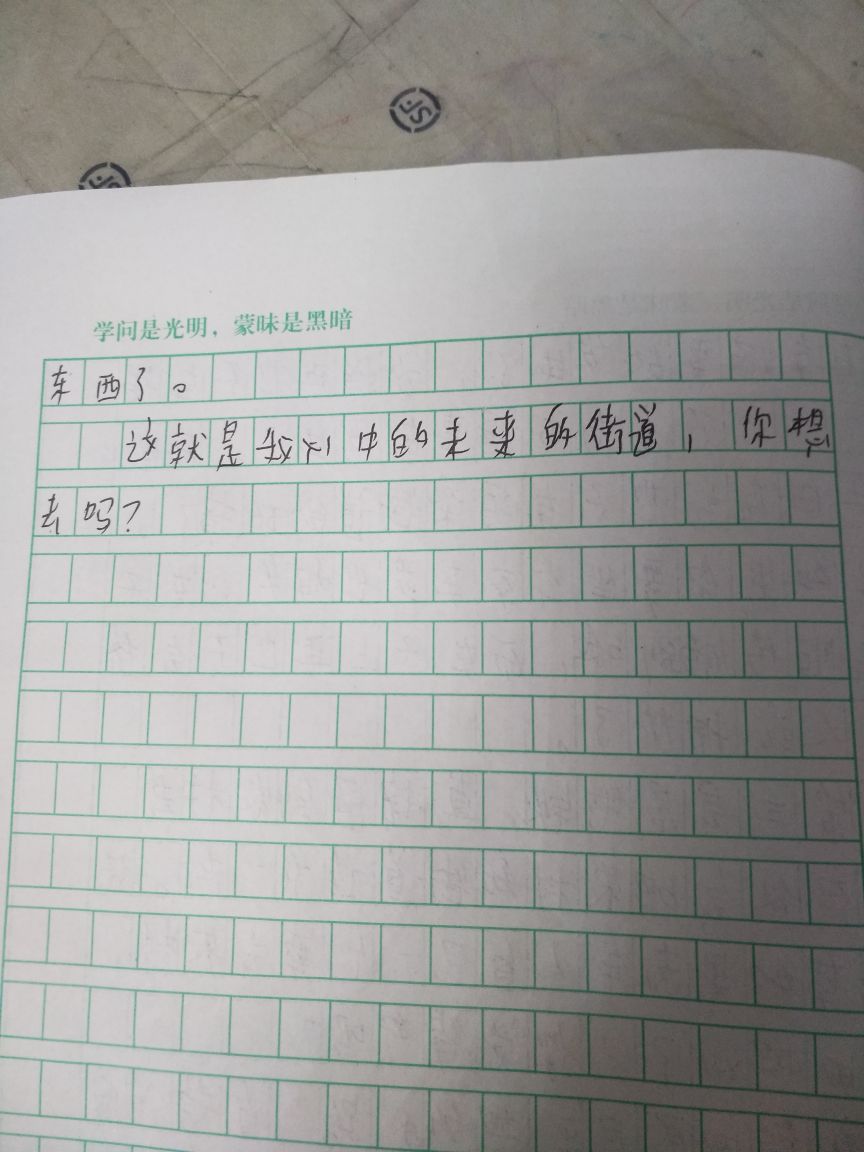 JS
JS
学问是光明，蒙昧是黑暗
东西了。
这就是我心中的未来的街道，你想
去吗？